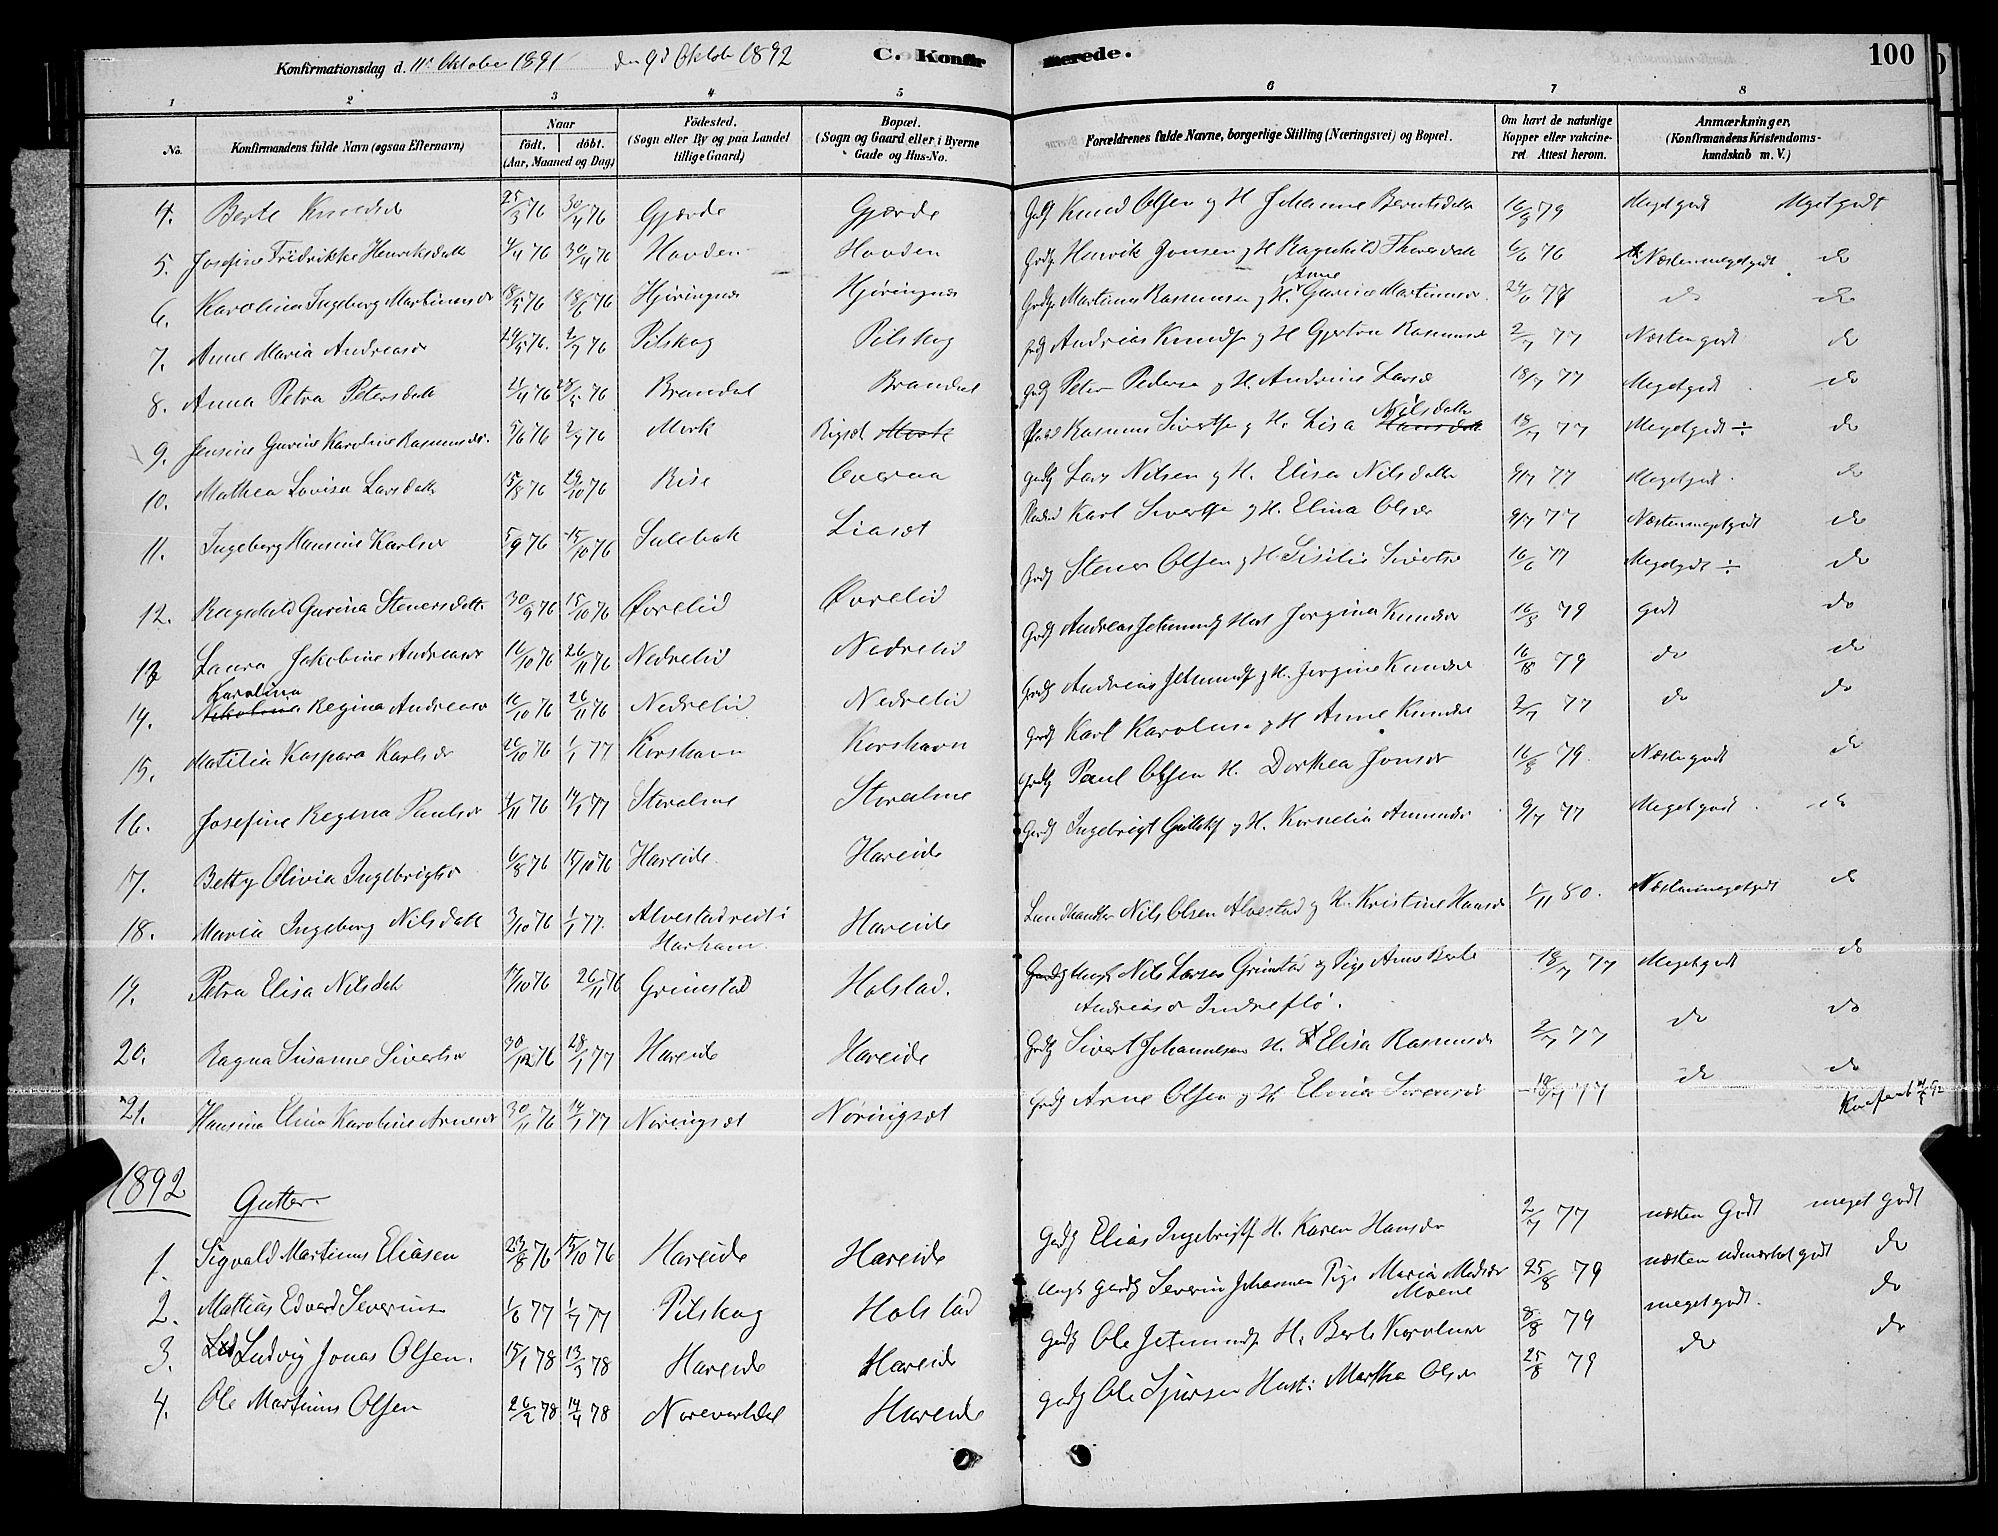 Konfirmationsdag d. 11te Oktober 1891 den 9de Oktober 1892 C. Konfirmerede. 100
1 2 3 4 5 6 7 8
No. Konfirmandens fulde Navn (ogsaa Efternavn) Naar født. døbt. (Aar, Maaned og Dag) Fødested. (Sogn eller By og paa Landet tillige Gaard) Bopæl. (Sogn og Gaard eller i Byerne Gade og Hus-No. Forældrenes fulde Navne, borgerlige Stilling (Næringsvei) og Bopæl. Om havt de naturlige Kopper eller vakcineret. Attest herom. Anmærkninger, (Konfirmandens Kristendomskundskab m. V.)
4. Berte Knudsd 25/3 76 30/4 76 Gjerde Gjerde Gdf Knud Olsen og H Johanne Berntsdatter 16/8 79 Meget godt Meget godt
5. Josefine Fredrikke Henriksdatt 4/4 76 30/4 76 Hovden Hovden Grdf Henrik Jonsen og H Ragnhild Thoresdatt 6/6 76 Næsten meget godt do
6. Karolina Ingeborg Martinusd 18/5 76 18/6 76 Hjøringnes Hjøringnes Grdf Martinus Rasmussen og H. Anne Gurine Martinusd. 24/6 77 do do
7. Anne Maria Andreasd 24/5 76. 2/7 76 Pilskog Pilskog Grdf Andreas Knuds og H Gjertru Rasmusd 2/7 77 Næsten godt do
8. Anna Petra Petersdatt 21/4 76 28/5 76 Brandal Brandal Grdf Peter Pedersen og H. Andrine Larsd 18/7 77 Meget godt do
9. Jensine Gurine Karoline Rasmusd. 5/6 76 2/7 76 Mork Rigset Mork Rasmus Sivertsen og H. Lisa Nilsdatter Hansdatt 18/7 77 Meget godt ÷ do
10. Mathea Lovise Larsdatter 15/8 76 29/10 76 Rise Overaa Grdf Lars Nilsen og H. Elisa Nilsdatter 9/7 77 Meget godt. do
11. Ingeborg Hansine Karlsd 5/9 76 15/10 76 Sulebak Liaset Karl Sivertsen og H. Elina Olsd 9/7 77 Næsten meget godt do
12. Ragnhild Gurina Stenersdatter 30/9 76 15/10 76 Øvrelid Øvrelid Grdf Stener Olsen og H Sisilie Sivertsd 16/6 77 Meget godt ÷ do
13 Laura Jakobine Andreasd 16/10 76 26/11 76 Nedrelid Nedrelid Grdf Andreas Jetmunds Hust Jorgina Knudsd 16/8 79 godt do
14. Karolina Nikoline Regina Andreasd 16/10 76 26/11 76 Nedrelid Nedrelid Grdf Andreas Jetmunds og H. Jorgine Knudsd 16/8 79 do do
15. Matilia Kaspara Karlsd 26/10 76 1/1 77 Korshavn Korshavn Grdf Karl Karoluss og H Anne Knudsd 2/7 77 do do
16. Josefine Regina Paulsd 4/11 76 14/1 77 Storalme Storalme Grdf Paul Olsen H. Dorthea Jonsd 16/8 79. Næsten godt do
17. Betty Olivia Ingebrigtsd 6/8 76 15/10 76 Hareide. Hareide Grdf Ingebrigt Gullaks og H. Kornelia Amundsd 9/7 77 Meget godt. do
18. Maria Ingeborg Nilsdatt 3/10 76 1/1 77. Alvestad i Harham. Hareide Landhandler Nils Olsen Alvestad og H. Kristine Hansd 1/11 80. Næsten meget godt do
19. Petra Elisa Nilsdatt 17/10 76 26/11 76 Grimstad Holstad. Ungk Nils Larsen Grimstad og Pige Anne Berte Andreasd Indreflø. 18/7 77 Meget godt do
20. Ragna Susanne Sivertsd 30/12 76 28/1 77 Hareide Hareide Grdf Sivert Johannesen H. Elisa Rasmusd 2/7 77 do do
21. Hansina Elina Karoline Arnesd 30/11 76 14/1 77 Nøringset Nøringset Grdf Arne Olsen og H Elina Sørensd 18/7 77 do do
1892
Gutter
1. Sigvald Martinus Eliasen 23/8 76 15/10 76 Hareide Hareide Gdf Elias Ingebrigts H. Karen Hansd 2/7 77 næsten Godt meget godt
2. Mattias Edvard Severins 1/6 77 1/7 77 Pilskog Holstad Ungk Gdf Severin Johannsen Pige Maria Madsd Moene 25/8 79 næsten udmærket godt do
3. Ludvig Jonas Olsen. 15/1 78 13/3 78 Hareide Hareide Gdf Ole Jetmunds H. Berte Karolusd 8/8 79 meget godt. do
4. Ole Martinus Olsen 26/2 78 14/4 78 Norevartdal Hareide Gdf Ole Sjursen Hust: Martha Olsd 25/8 79 do do